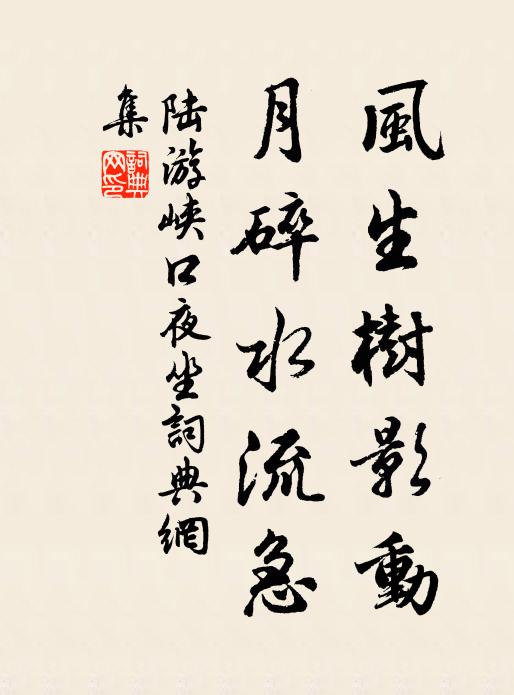 風生樹影動
月碎水流急
陆游峡口夜坐詞典網
集
詞典
网印